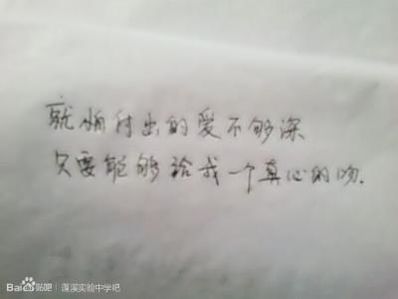 就怕付出的爱不够深
只要能够给我一个真心的吻.
Bai贴吧 | 蓬溪实验中学吧